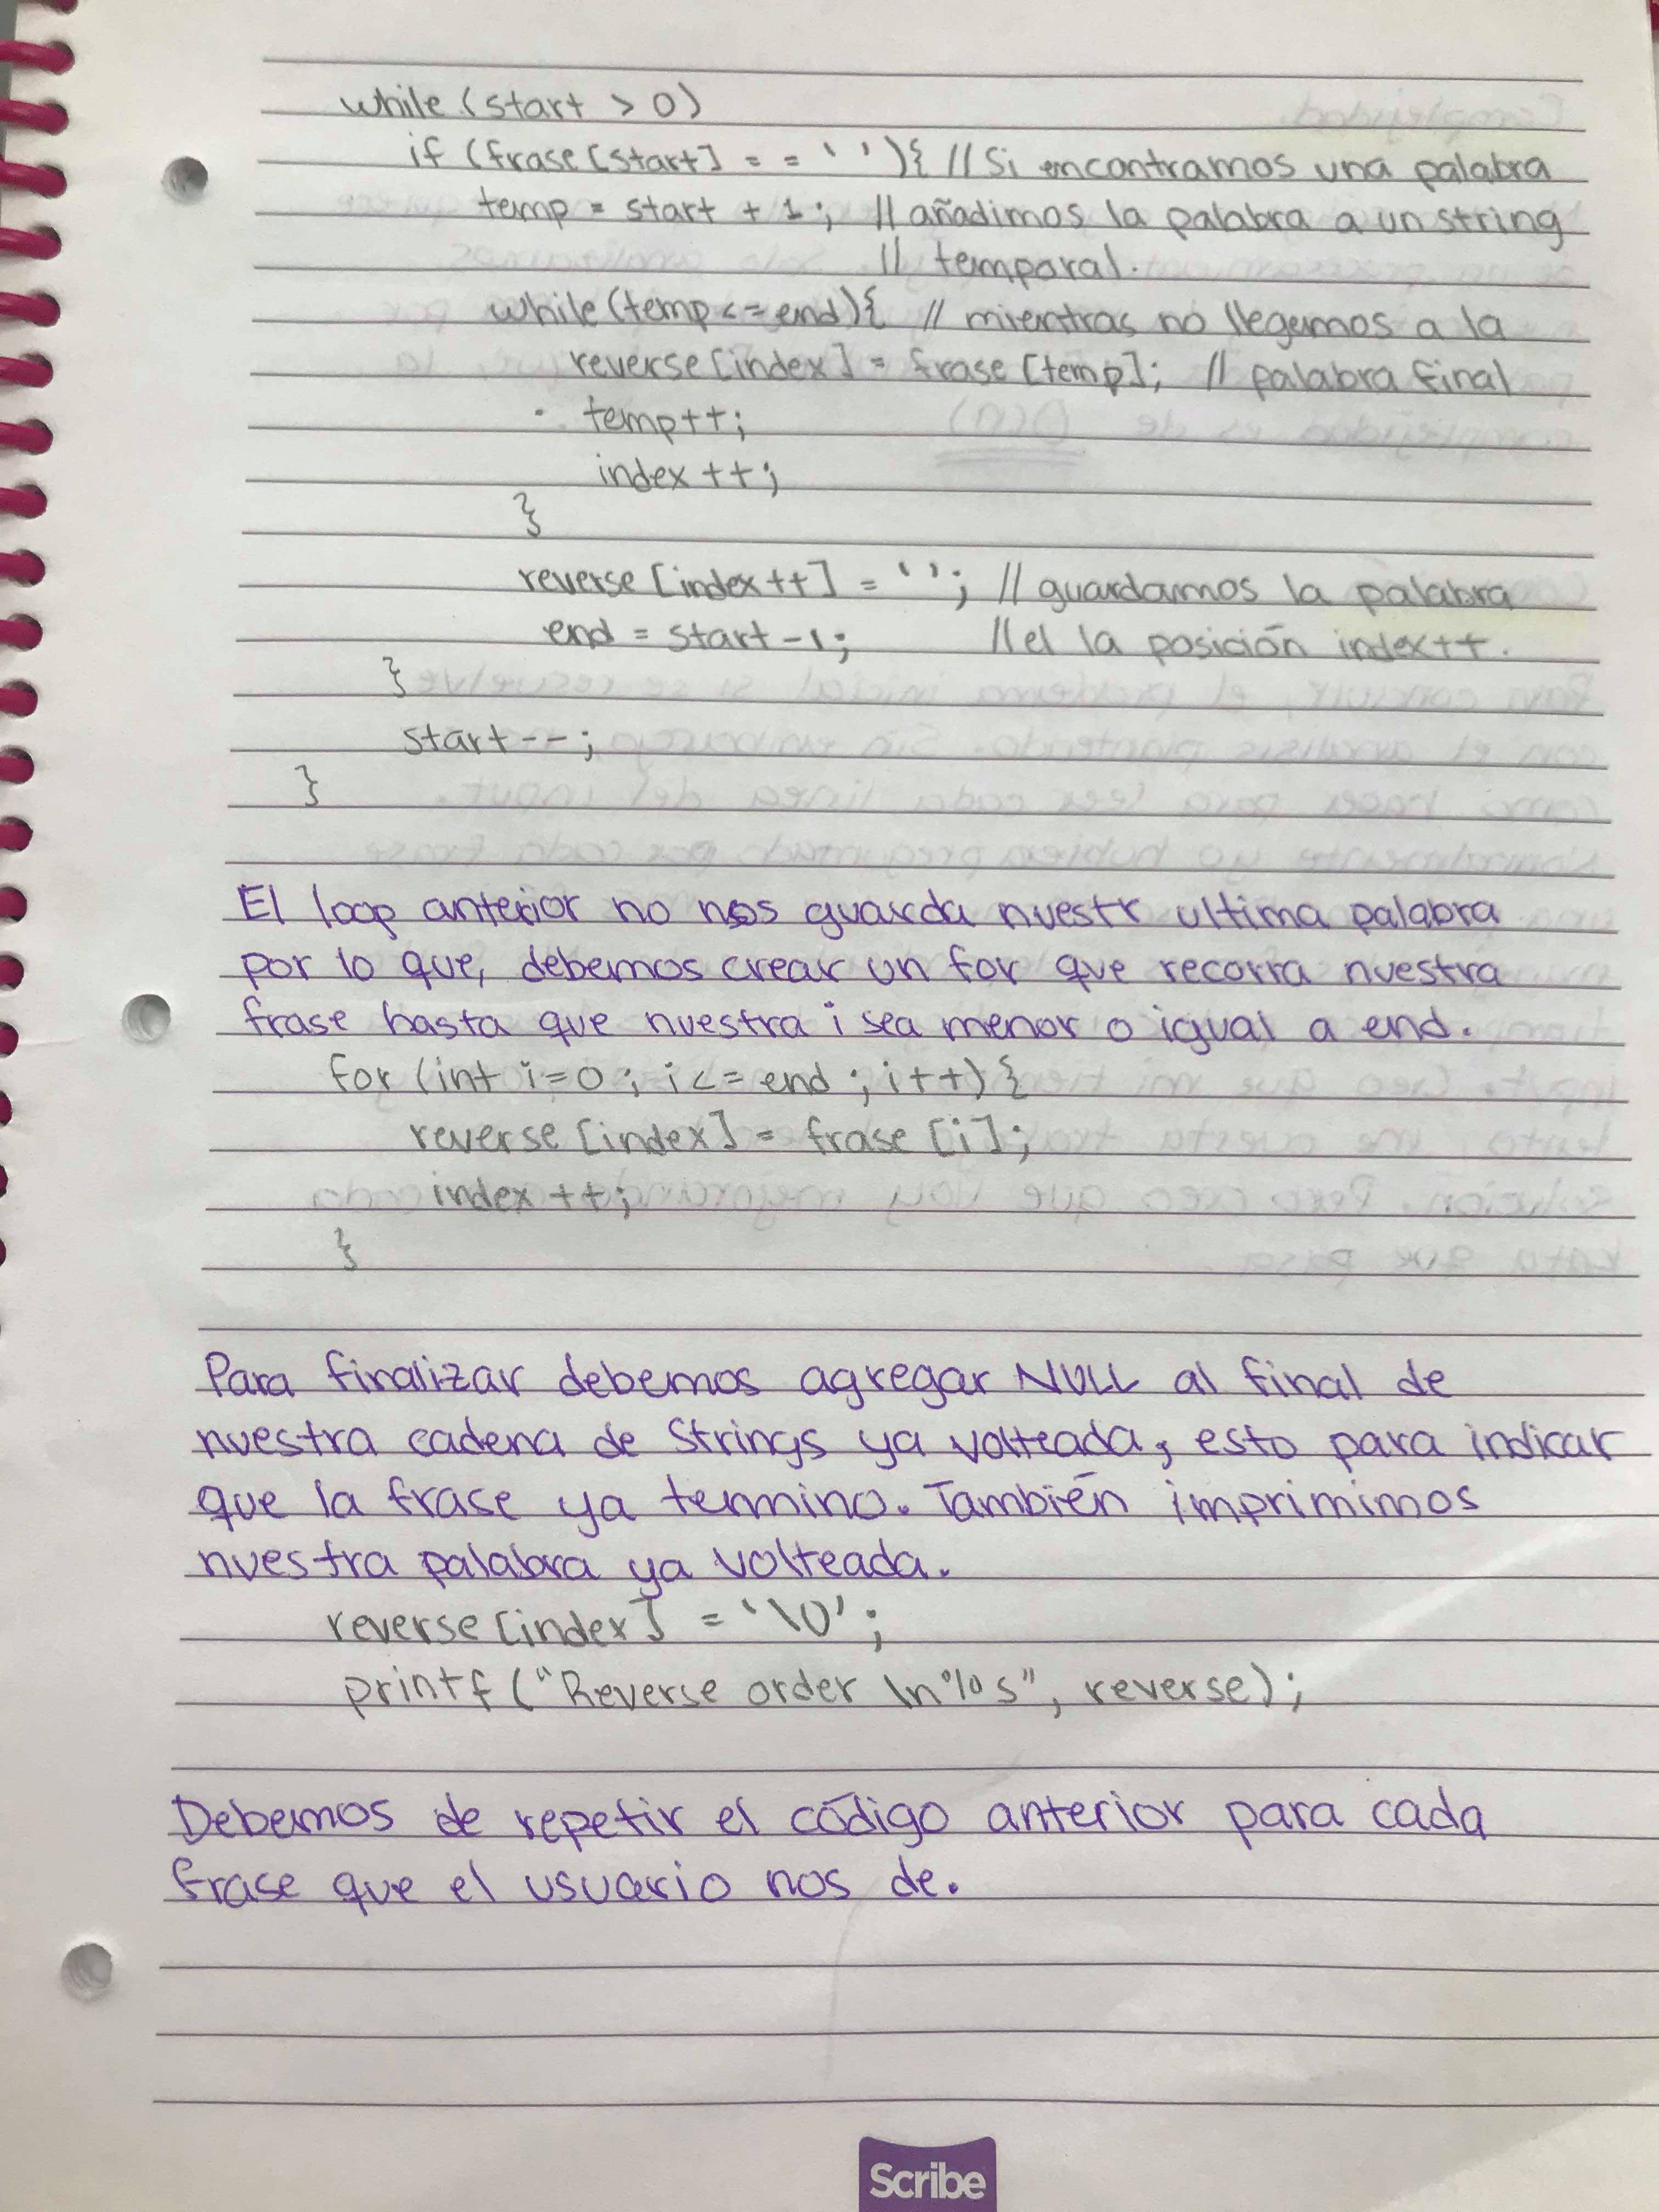 while (start > 0)
if (frase[start] == ' '){ // Si encontramos una palabra
temp = start + 1; // añadimos la palabra a un string
// temporal.
while (temp <= end){ // mientras no llegemos a la
reverse[index] = frase[temp]; // palabra final
temp++;
index++;
}
reverse[index++] = ' '; // guardamos la palabra
end = start-1; // el la posición index++.
}
start--;
}
El loop anterior no nos guarda nuestr ultima palabra
por lo que, debemos crear un for que recorra nuestra
frase hasta que nuestra i sea menor o igual a end.
for (int i=0; i<=end; i++){
reverse[index] = frase[i];
index++;
}
Para finalizar debemos agregar NULL al final de
nuestra cadena de Strings ya volteada, esto para indicar
que la frase ya termino. También imprimimos
nuestra palabra ya volteada.
reverse[index] = '\0';
printf("Reverse order \n%s", reverse);
Debemos de repetir el código anterior para cada
frase que el usuario nos de.
Scribe